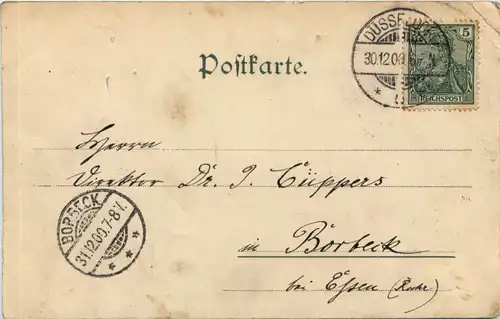 DÜSSELDORF
30.12.00.
5
REICHSPOST
Postkarte.
Herrn
Direktor Dr. J. Cüppers
BORBECK
31.12.00.7-8V.
in Borbeck
bei Essen (Ruhr)